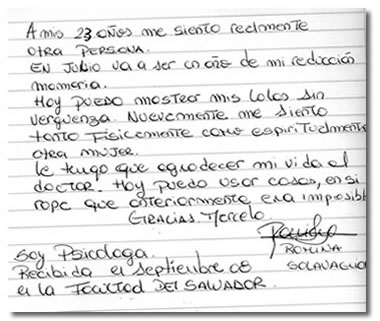 A mis 23 años me siento realmente
otra persona.
EN Julio va a ser un año de mi reducción
mamaria.
Hoy puedo mostrar mis lolas sin
verguenza. Nuevamente me siento
tanto fisicamente como espiritualmente
otra mujer.
le tengo que agradecer mi vida al
doctor. Hoy puedo usar cosas, en si
ropa que anteriormente era imposible
GRACIAS Marcelo.
ROMINA
Soy Psicologa.
Recibida el septiembre 08
el la Facultad Del Salvador.